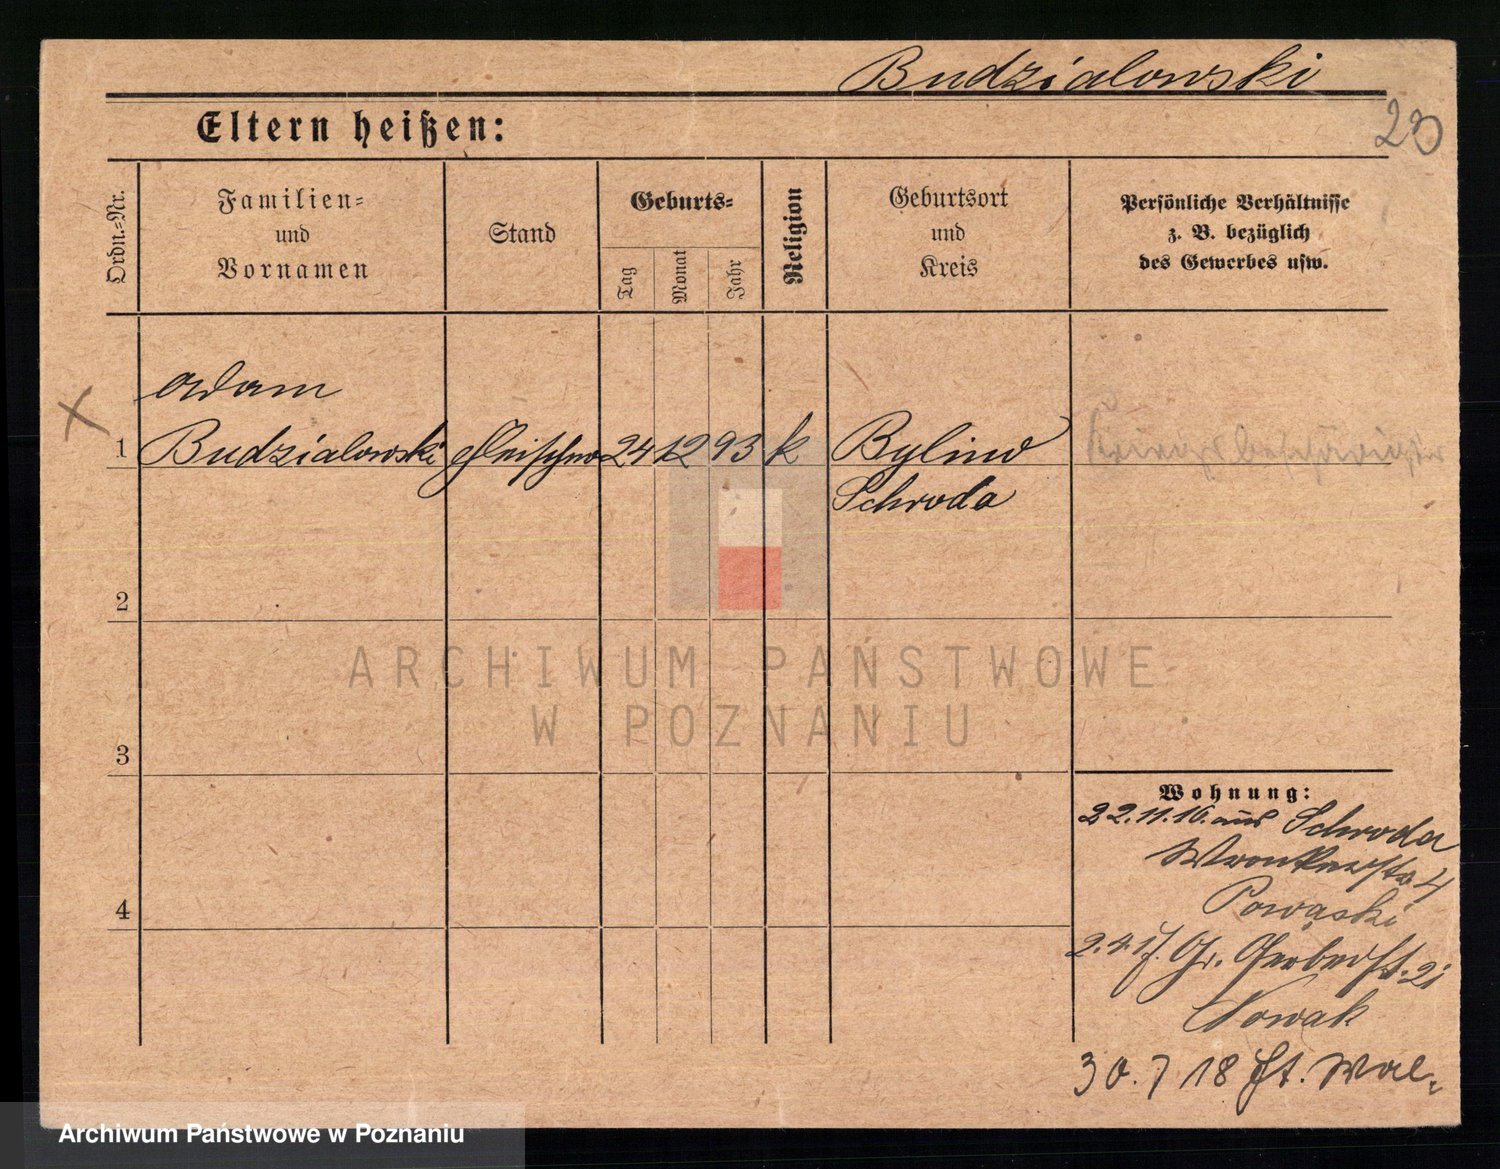 Budzialowski
23
Eltern heißen:
Ordn.-Nr.
Familien-
und
Vornamen
Stand
Geburts-
Tag
Monat
Jahr
Religion
Geburtsort
und
Kreis
Persönliche Verhältnisse
z. B. bezüglich
des Gewerbes usw.
Adam
1 Budzialowski Fleischer 24 12 93 k Bylin
Schroda
2
3
4
Wohnung:
22.11.16. aus Schroda
Wronkerstr 4
Powąski
2.4.17. Gr. Gerberst. 21
Nowak
30.7 18 St.
ARCHIWUM PAŃSTWOWE
W POZNANIU
Archiwum Państwowe w Poznaniu